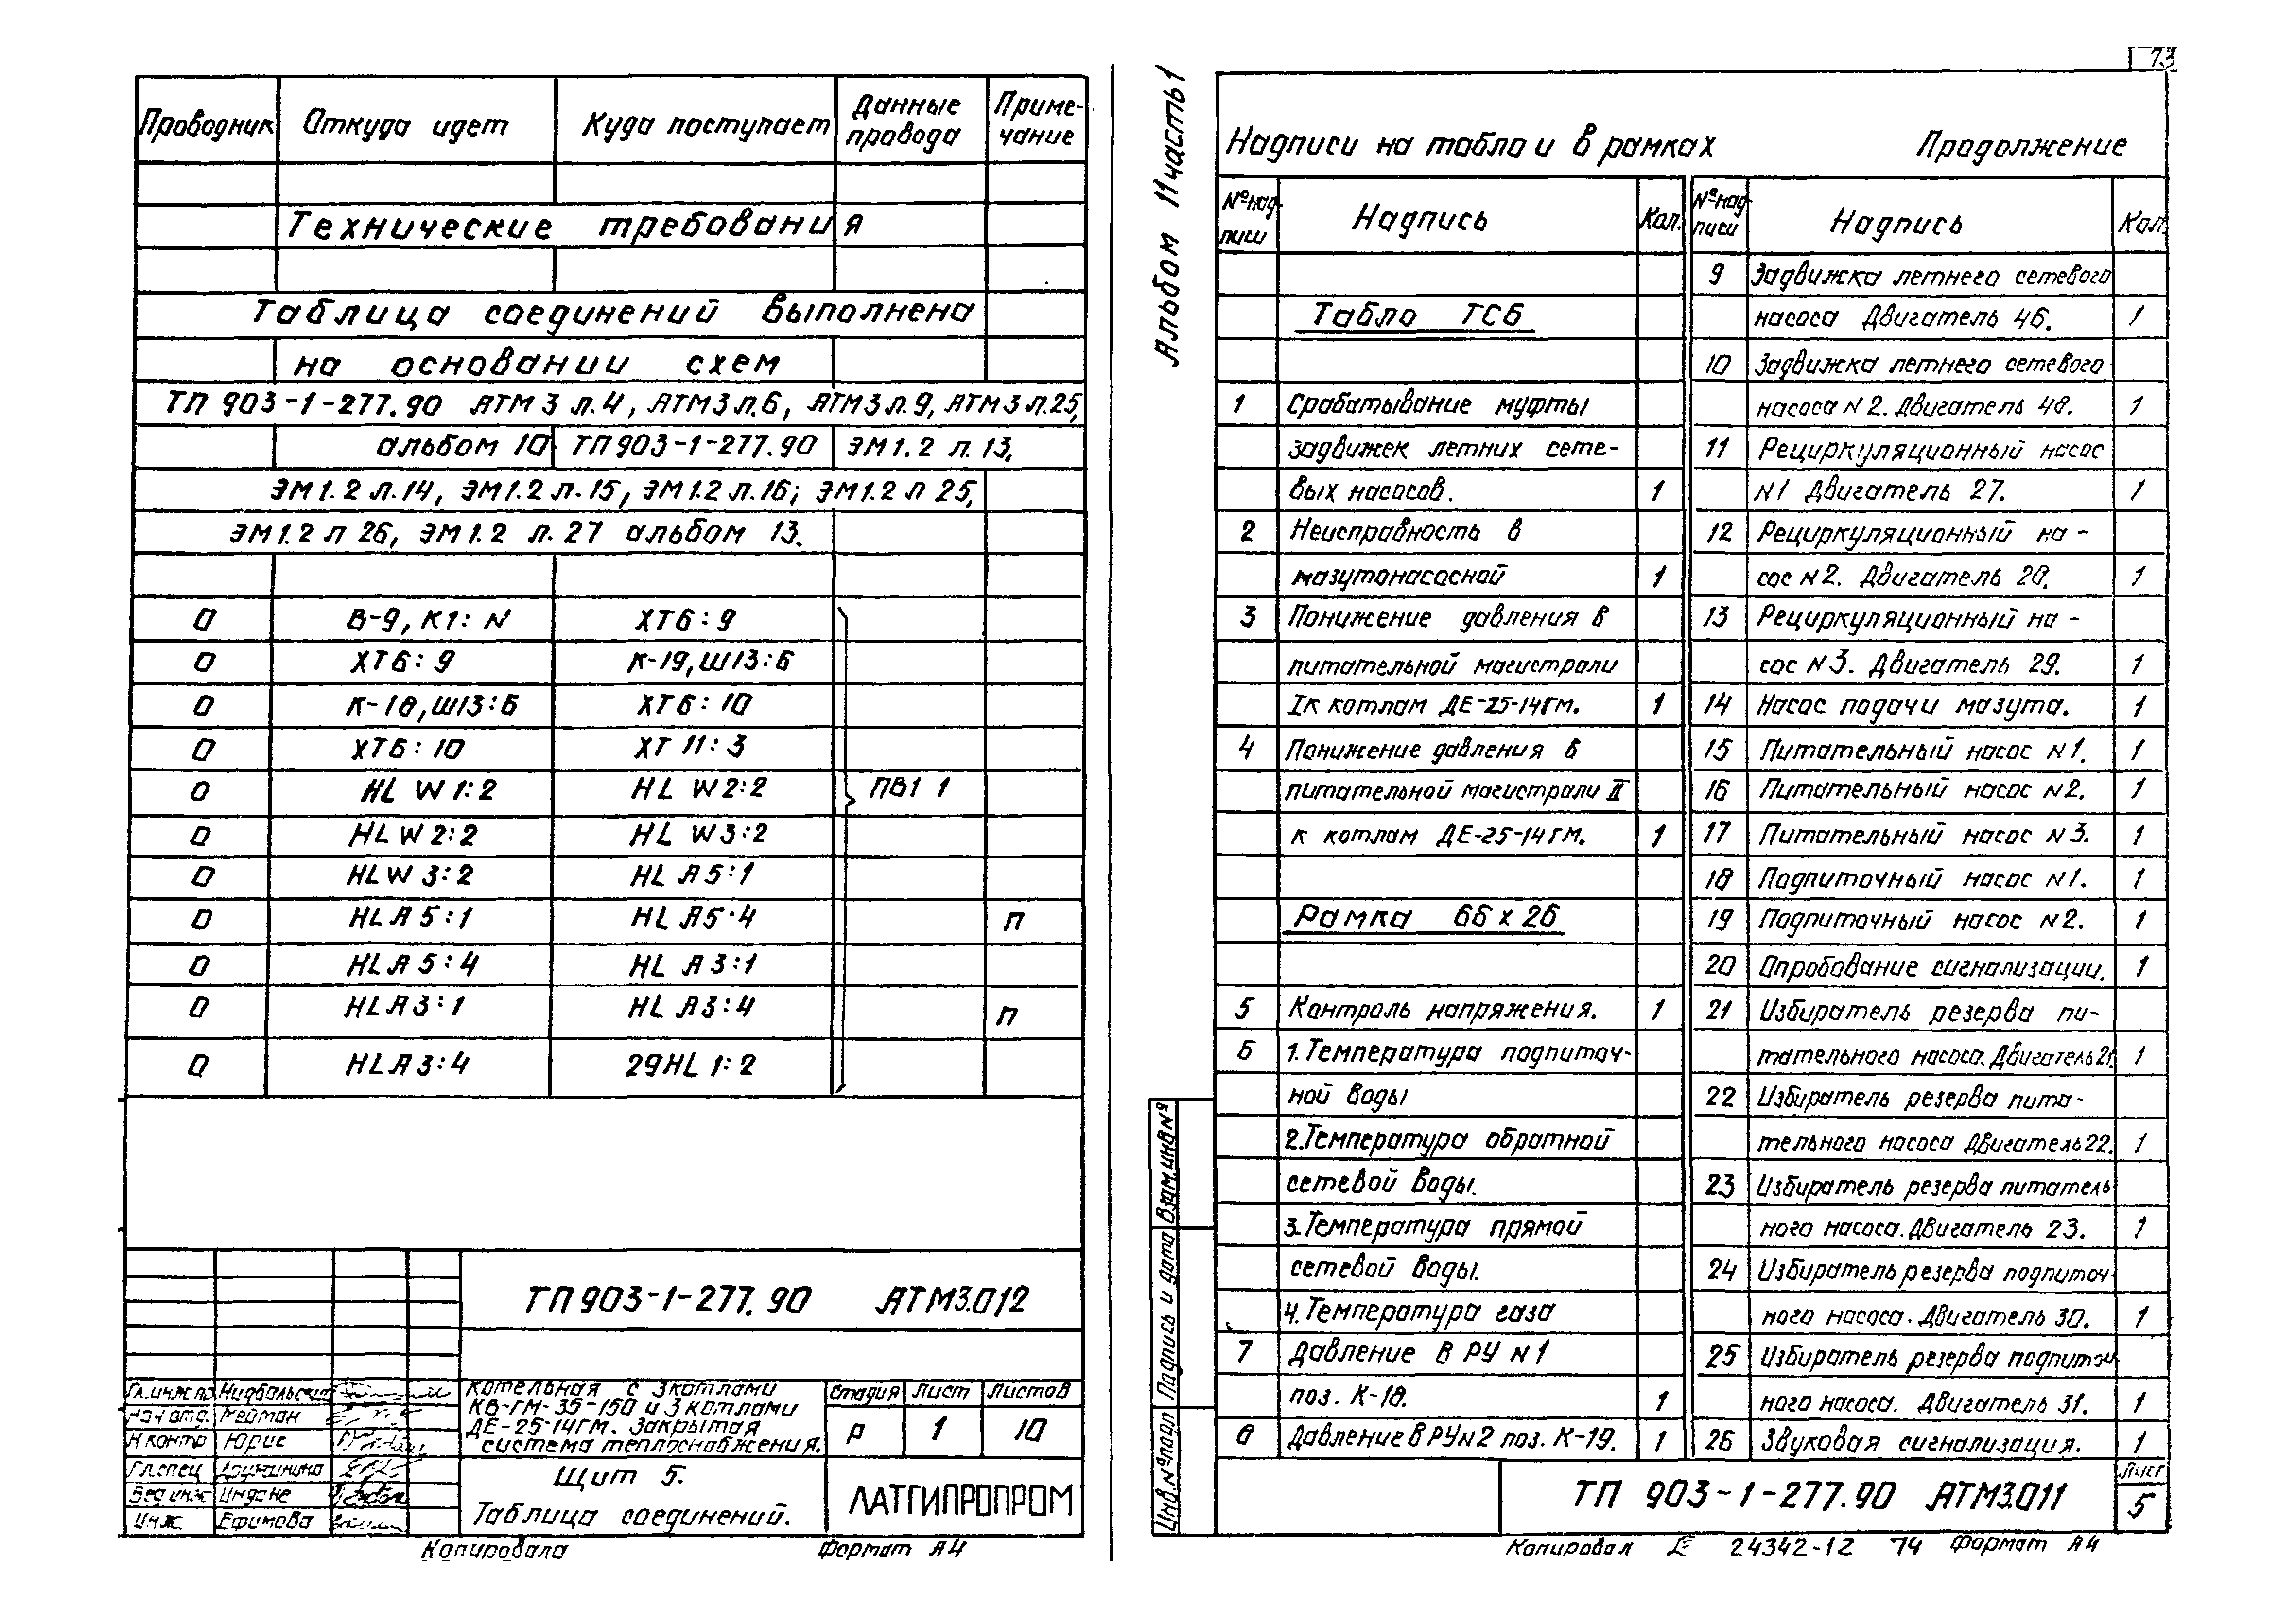 73
Проводник Откуда идет Куда поступает Данные провода Приме-чание
Технические требования
Таблица соединений выполнена
на основании схем
ТП 903-1-277.90 АТМ3 л.4, АТМ3 л.6, АТМ3 л.9, АТМ3 л.25,
альбом 10 ТП 903-1-277.90 ЭМ1.2 л.13,
ЭМ1.2 л.14, ЭМ1.2 л.15, ЭМ1.2 л.16; ЭМ1.2 л 25,
ЭМ1.2 л 26, ЭМ1.2 л.27 альбом 13.
0 В-9, К1: N ХТ6: 9
0 ХТ6: 9 К-19, Ш13:Б
0 К-18, Ш13:Б ХТ6: 10
0 ХТ6: 10 ХТ 11: 3
0 HL W1:2 HL W2:2 ПВ1 1
0 HL W2:2 HL W3:2
0 HLW 3:2 HL A5:1
0 HLA 5:1 HL A5·4 П
0 HLA 5:4 HL A3:1
0 HLA3:1 HL A3:4 П
0 HLA3:4 29HL 1:2
ТП 903-1-277.90 АТМ3.012
Гл.инж.пр.
Нач отд. Рейман
Н контр Юрис
Гл.спец Дружинина
Вед инж Индане
Инж Ефимова
Котельная с 3 котлами
КВ-ГМ-35-150 и 3 котлами
ДЕ-25-14ГМ. Закрытая
система теплоснабжения.
Стадия Лист Листов
Р 1 10
Щит 5.
Таблица соединений.
ЛАТГИПРОПРОМ
Копировала Формат А4
Альбом 11 часть 1
Взам.инв.№
Подпись и дата
Инв.№ подл
Надписи на табло и в рамках Продолжение
№ над-писи Надпись Кол. № над-писи Надпись Кол.
Табло ТСБ
1 Срабатывание муфты
задвижек летних сете-
вых насосов. 1
2 Неисправность в
мазутонасосной 1
3 Понижение давления в
питательной магистрали
I к котлам ДЕ-25-14ГМ. 1
4 Понижение давления в
питательной магистрали II
к котлам ДЕ-25-14ГМ. 1
Рамка 66х26
5 Контроль напряжения. 1
6 1.Температура подпиточ-
ной воды
2.Температура обратной
сетевой воды.
3.Температура прямой
сетевой воды.
4.Температура газа
7 Давление в РУ N1
поз. К-18. 1
8 Давление в РУ N2 поз. К-19. 1
9 Задвижка летнего сетевого
насоса Двигатель 46. 1
10 Задвижка летнего сетевого
насоса N2. Двигатель 48. 1
11 Рециркуляционный насос
N1 Двигатель 27. 1
12 Рециркуляционный на-
сос N2. Двигатель 28. 1
13 Рециркуляционный на-
сос N3. Двигатель 29. 1
14 Насос подачи мазута. 1
15 Питательный насос N1. 1
16 Питательный насос N2. 1
17 Питательный насос N3. 1
18 Подпиточный насос N1. 1
19 Подпиточный насос N2. 1
20 Опробование сигнализации. 1
21 Избиратель резерва пи-
тательного насоса. Двигатель 21. 1
22 Избиратель резерва пита-
тельного насоса Двигатель 22. 1
23 Избиратель резерва питатель-
ного насоса. Двигатель 23. 1
24 Избиратель резерва подпиточ-
ного насоса. Двигатель 30. 1
25 Избиратель резерва подпиточ-
ного насоса. Двигатель 31. 1
26 Звуковая сигнализация. 1
ТП 903-1-277.90 АТМ3.011
Лист
5
Копировал 24342-12 74 Формат А4